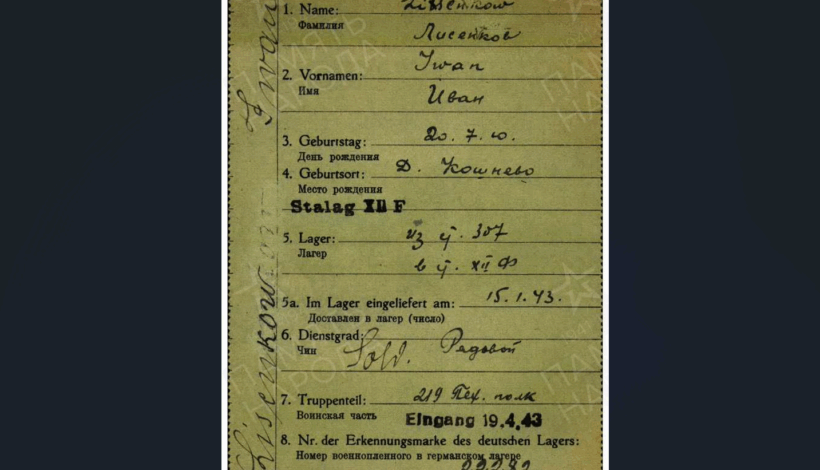 1. Name: Lissenkow
Фамилия Лисенков
2. Vornamen: Iwan
Имя Иван
3. Geburtstag: 20. 7. 10.
День рождения
4. Geburtsort: Д. Кошнево
Место рождения
Stalag XII F
5. Lager: из ц. 307
Лагер в ц. XII Ф
5a. Im Lager eingeliefert am: 15.1.43.
Доставлен в лагер (число)
6. Dienstgrad: Sold. Рядовой
Чин
7. Truppenteil: 219 Пех. полк
Воинская часть Eingang 19.4.43
8. Nr. der Erkennungsmarke des deutschen Lagers:
Номер военнопленного в германском лагере
Lissenkow Iwan
ПАМЯТЬ
НАРОДА